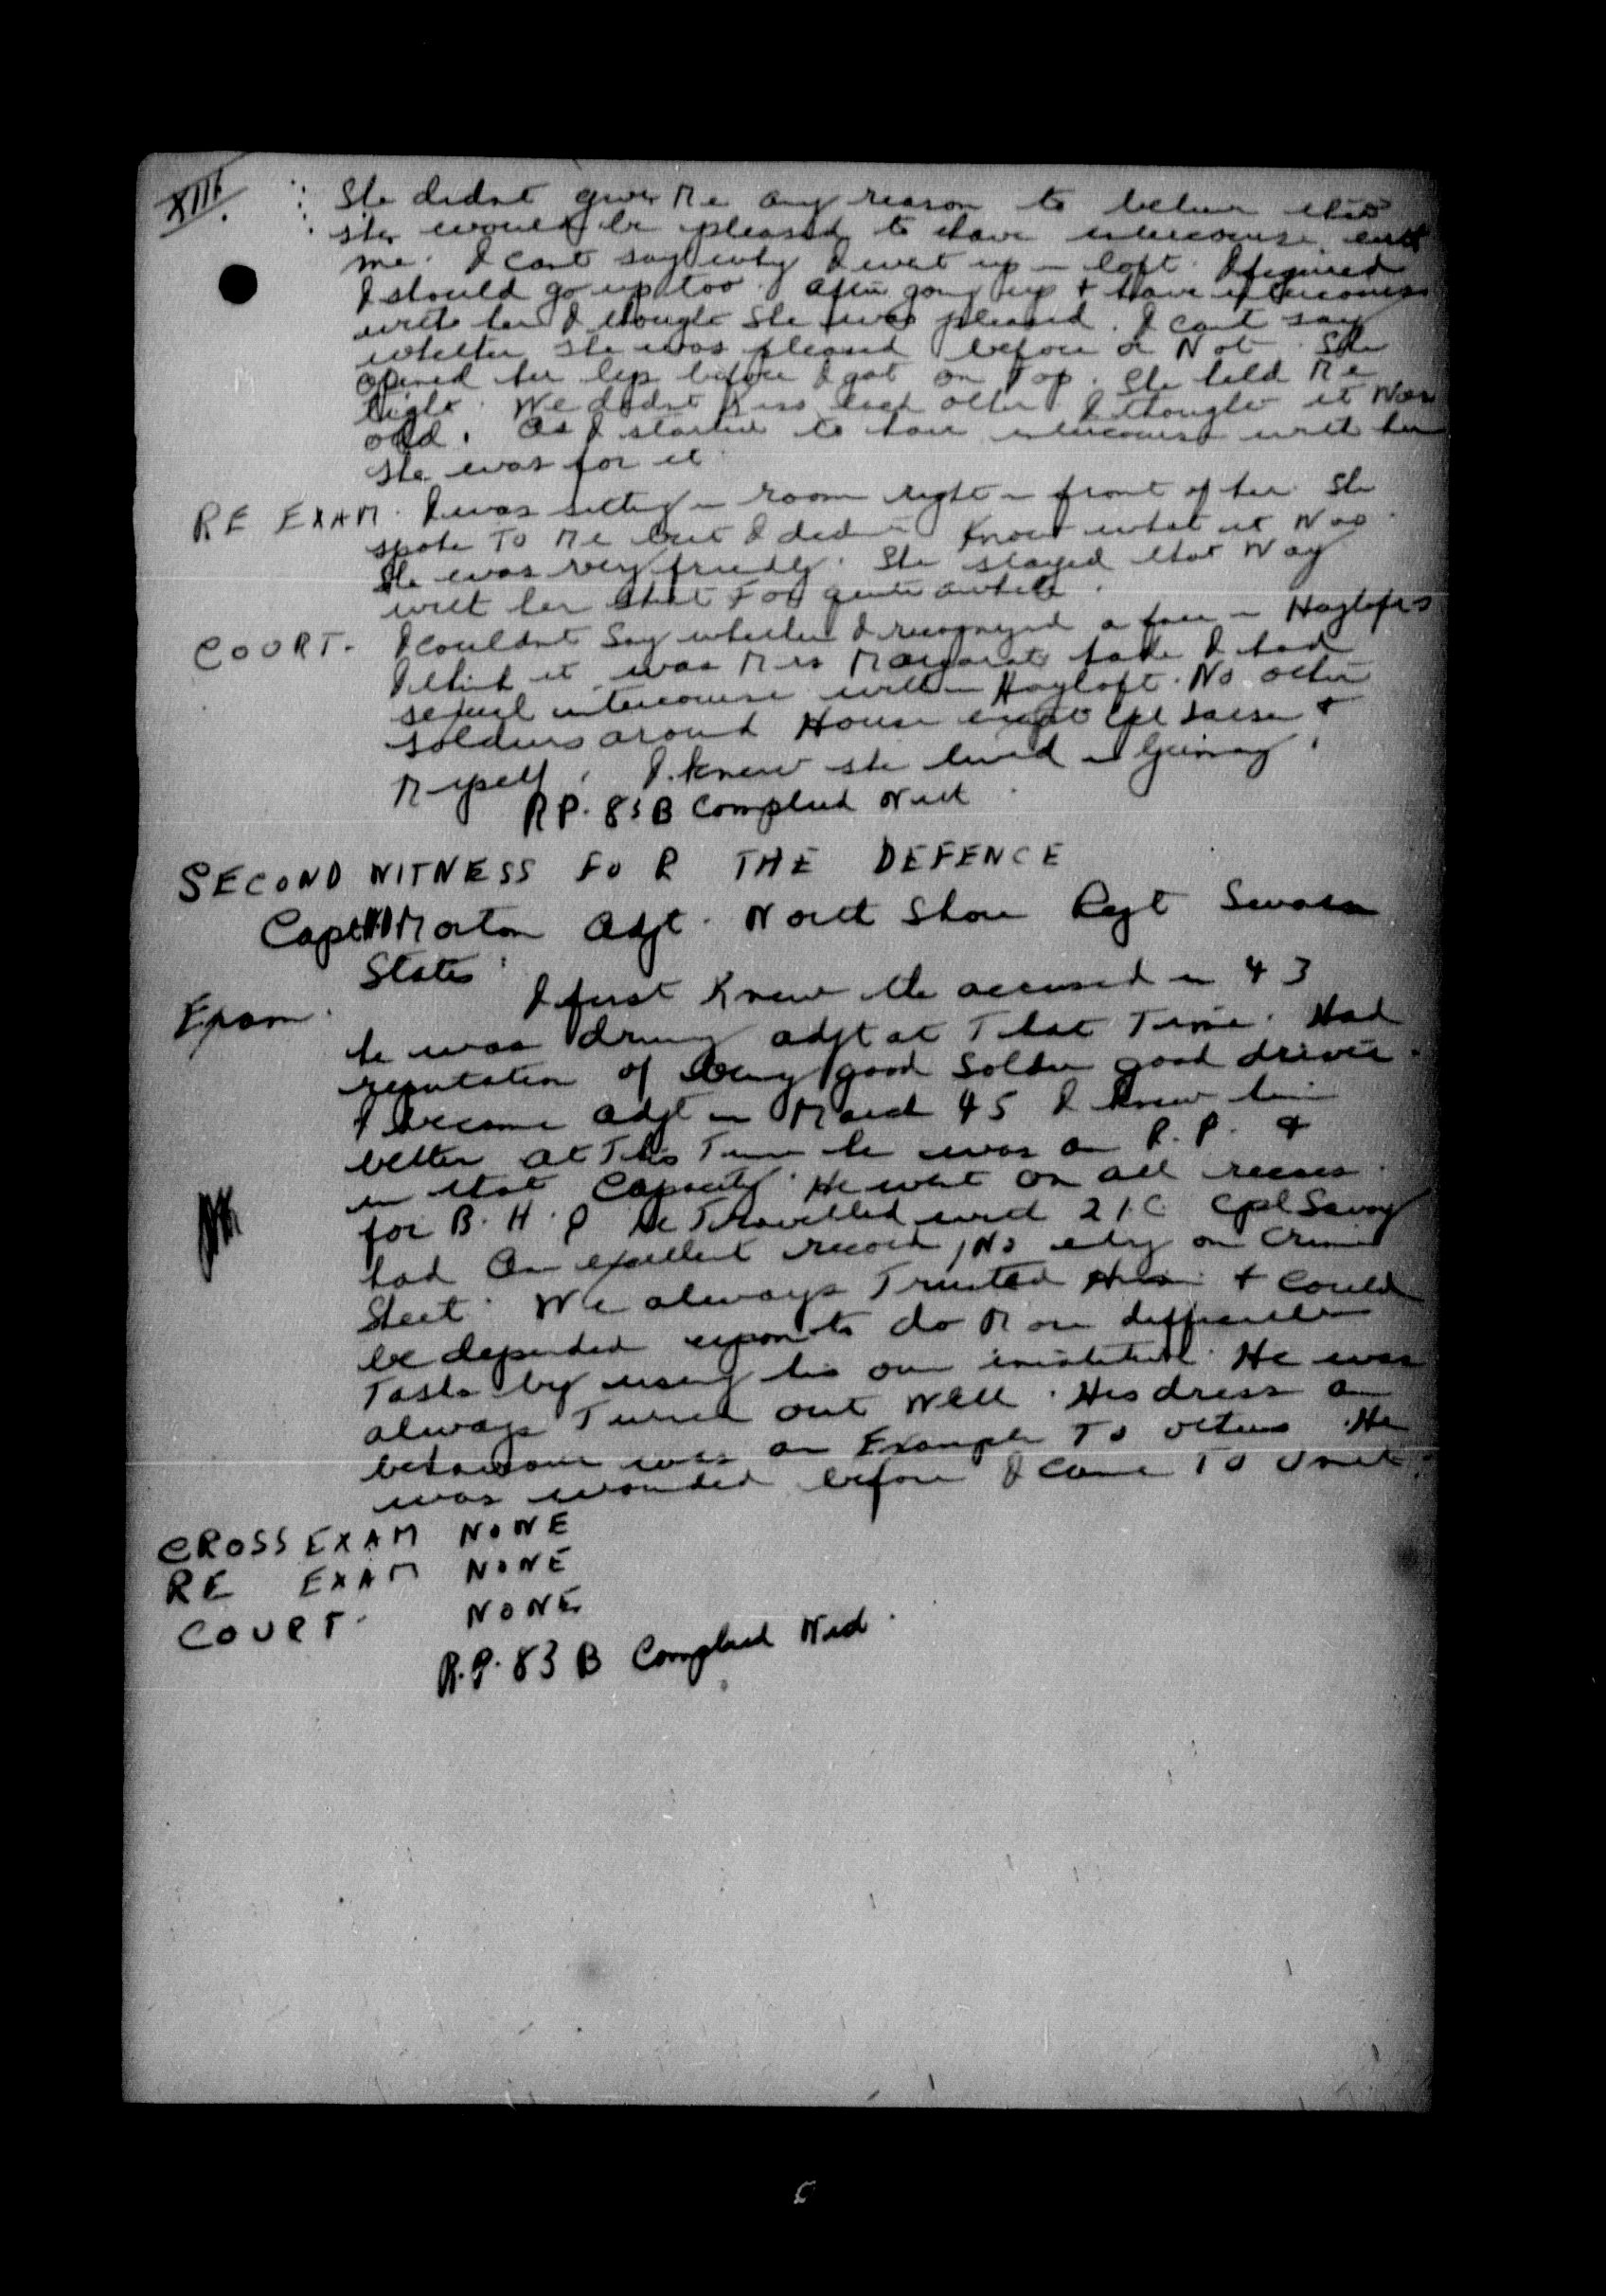 XIII
She didnt give Me any reason to believe that
she would be pleased to have intercourse with
me. I cant say why I went up in loft. I figured
I should go up too. After going up & have intercourse
with her I thought she was pleased. I cant say
whether she was pleased before or Not. She
opened her legs before I got on Top. She held Me
tight. We didnt kiss each other. I thought it Was
odd. As I started to have intercourse with her
she was for it.
RE EXAM. I was sitting in room right in front of her. She
spoke To Me but I didnt Know what it Was.
She was very friendly. She stayed that Way
with her For quite awhile.
COURT. I couldnt Say whether I recognized a face in Hayloft
I think it was Mrs I had
sexual intercourse with in Hayloft. No other
soldiers around House except Cpl &
Myself. I knew she lived in Germany.
RP. 83B Complied With
SECOND WITNESS FOR THE DEFENCE
Capt Morton Adjt. North Shore Regt Sworn
States:
Exam. I first Knew the accused in 43
he was driving adjt at That Time. Had
reputation of being good Soldier good driver.
I became adjt in March 45 I knew him
better at This Time he was an R.P. &
in that Capacity. He went on all recces
for B.H.Q he Travelled with 2 I.C. Cpl Savoy
had an excellent record, No entry on Crime
Sheet. We always Trusted Him & Could
be depended upon to do More difficult
Tasks by using his own He was
always Turned out Well. His dress an
behaviour was an Example To others. He
was wounded before I came To Unit.
CROSS EXAM NONE
RE EXAM NONE
COURT. NONE
R.P. 83 B Complied With.